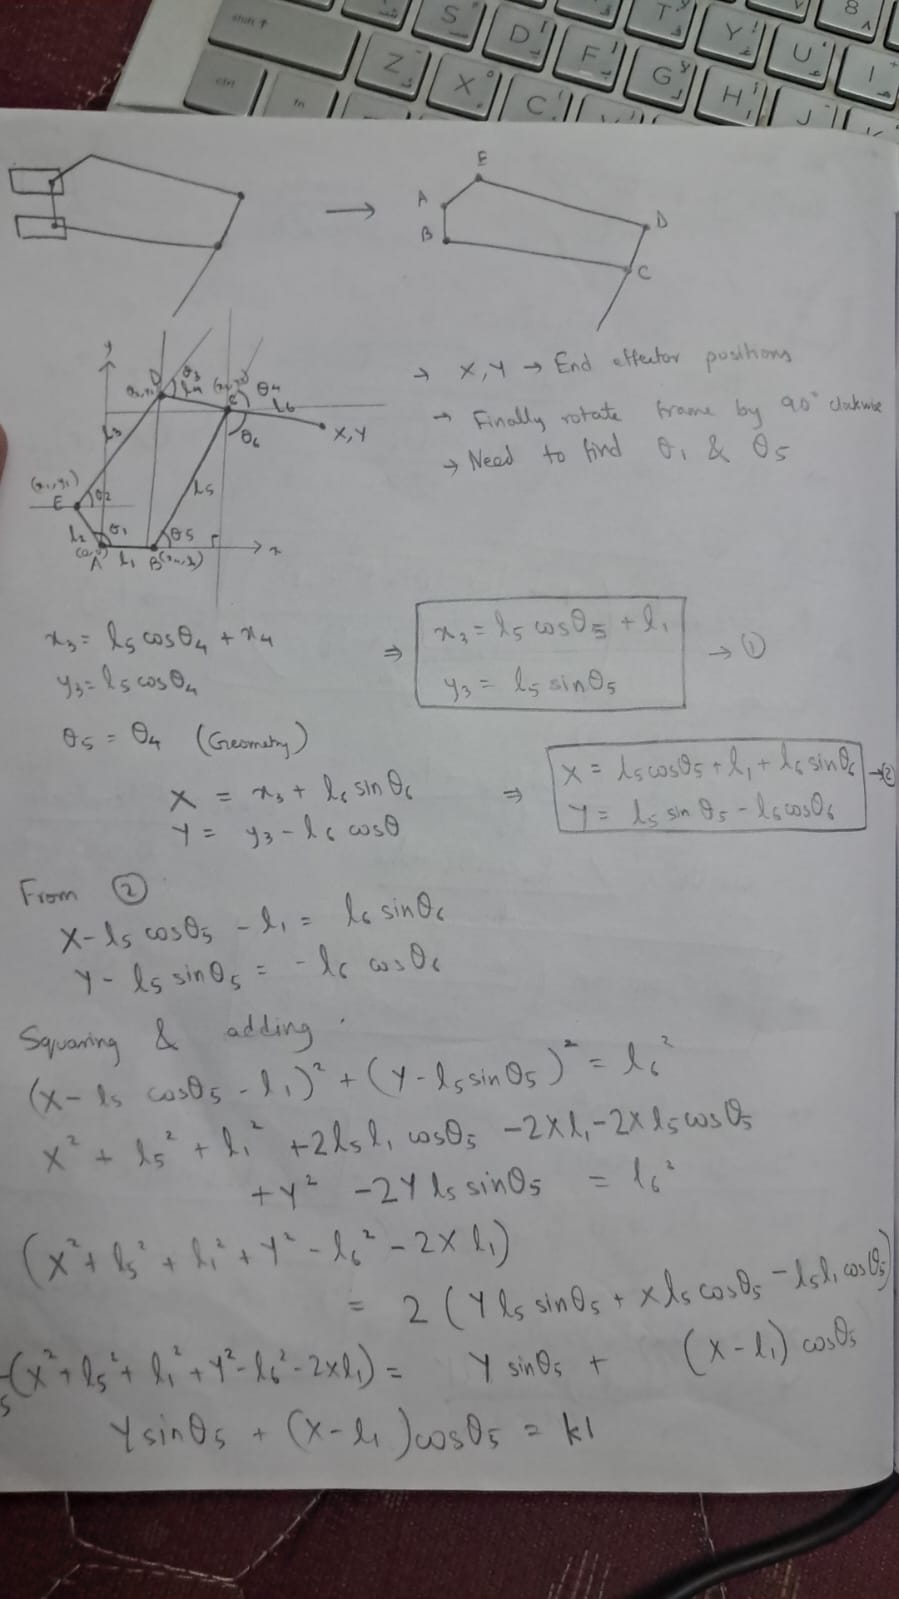 shift ↑
S
D
F
T
Y
U
8
Z
X
C
G
H
J
I
ctrl
fn
E
A
B
D
C
y
D
θ3
l4
θ4
C
l6
X, Y
l3
θ6
(x1, y1)
E
θ2
l5
l2
θ1
θ5
A
l1
B(x4, y4)
x
→ X, Y → End effector positions
→ Finally rotate frame by 90° clockwise
→ Need to find θ1 & θ5
x3 = l5 cosθ4 + x4
y3 = l5 cosθ4
⇒ x3 = l5 cosθ5 + l1
y3 = l5 sinθ5 → ①
θ5 = θ4 (Geometry)
X = x3 + l6 sinθ6
Y = y3 - l6 cosθ
⇒ X = l5 cosθ5 + l1 + l6 sinθ6 → ②
Y = l5 sinθ5 - l6 cosθ6
From ②
X - l5 cosθ5 - l1 = l6 sinθ6
Y - l5 sinθ5 = - l6 cosθ6
Squaring & adding
(X - l5 cosθ5 - l1)² + (Y - l5 sinθ5)² = l6²
X² + l5² + l1² + 2l5l1 cosθ5 - 2Xl1 - 2Xl5 cosθ5
+ Y² - 2Y l5 sinθ5 = l6²
(X² + l5² + l1² + Y² - l6² - 2Xl1)
= 2 (Y l5 sinθ5 + Xl5 cosθ5 - l5l1 cosθ5)
(X² + l5² + l1² + Y² - l6² - 2Xl1) = Y sinθ5 + (X - l1) cosθ5
Y sinθ5 + (X - l1) cosθ5 = k1